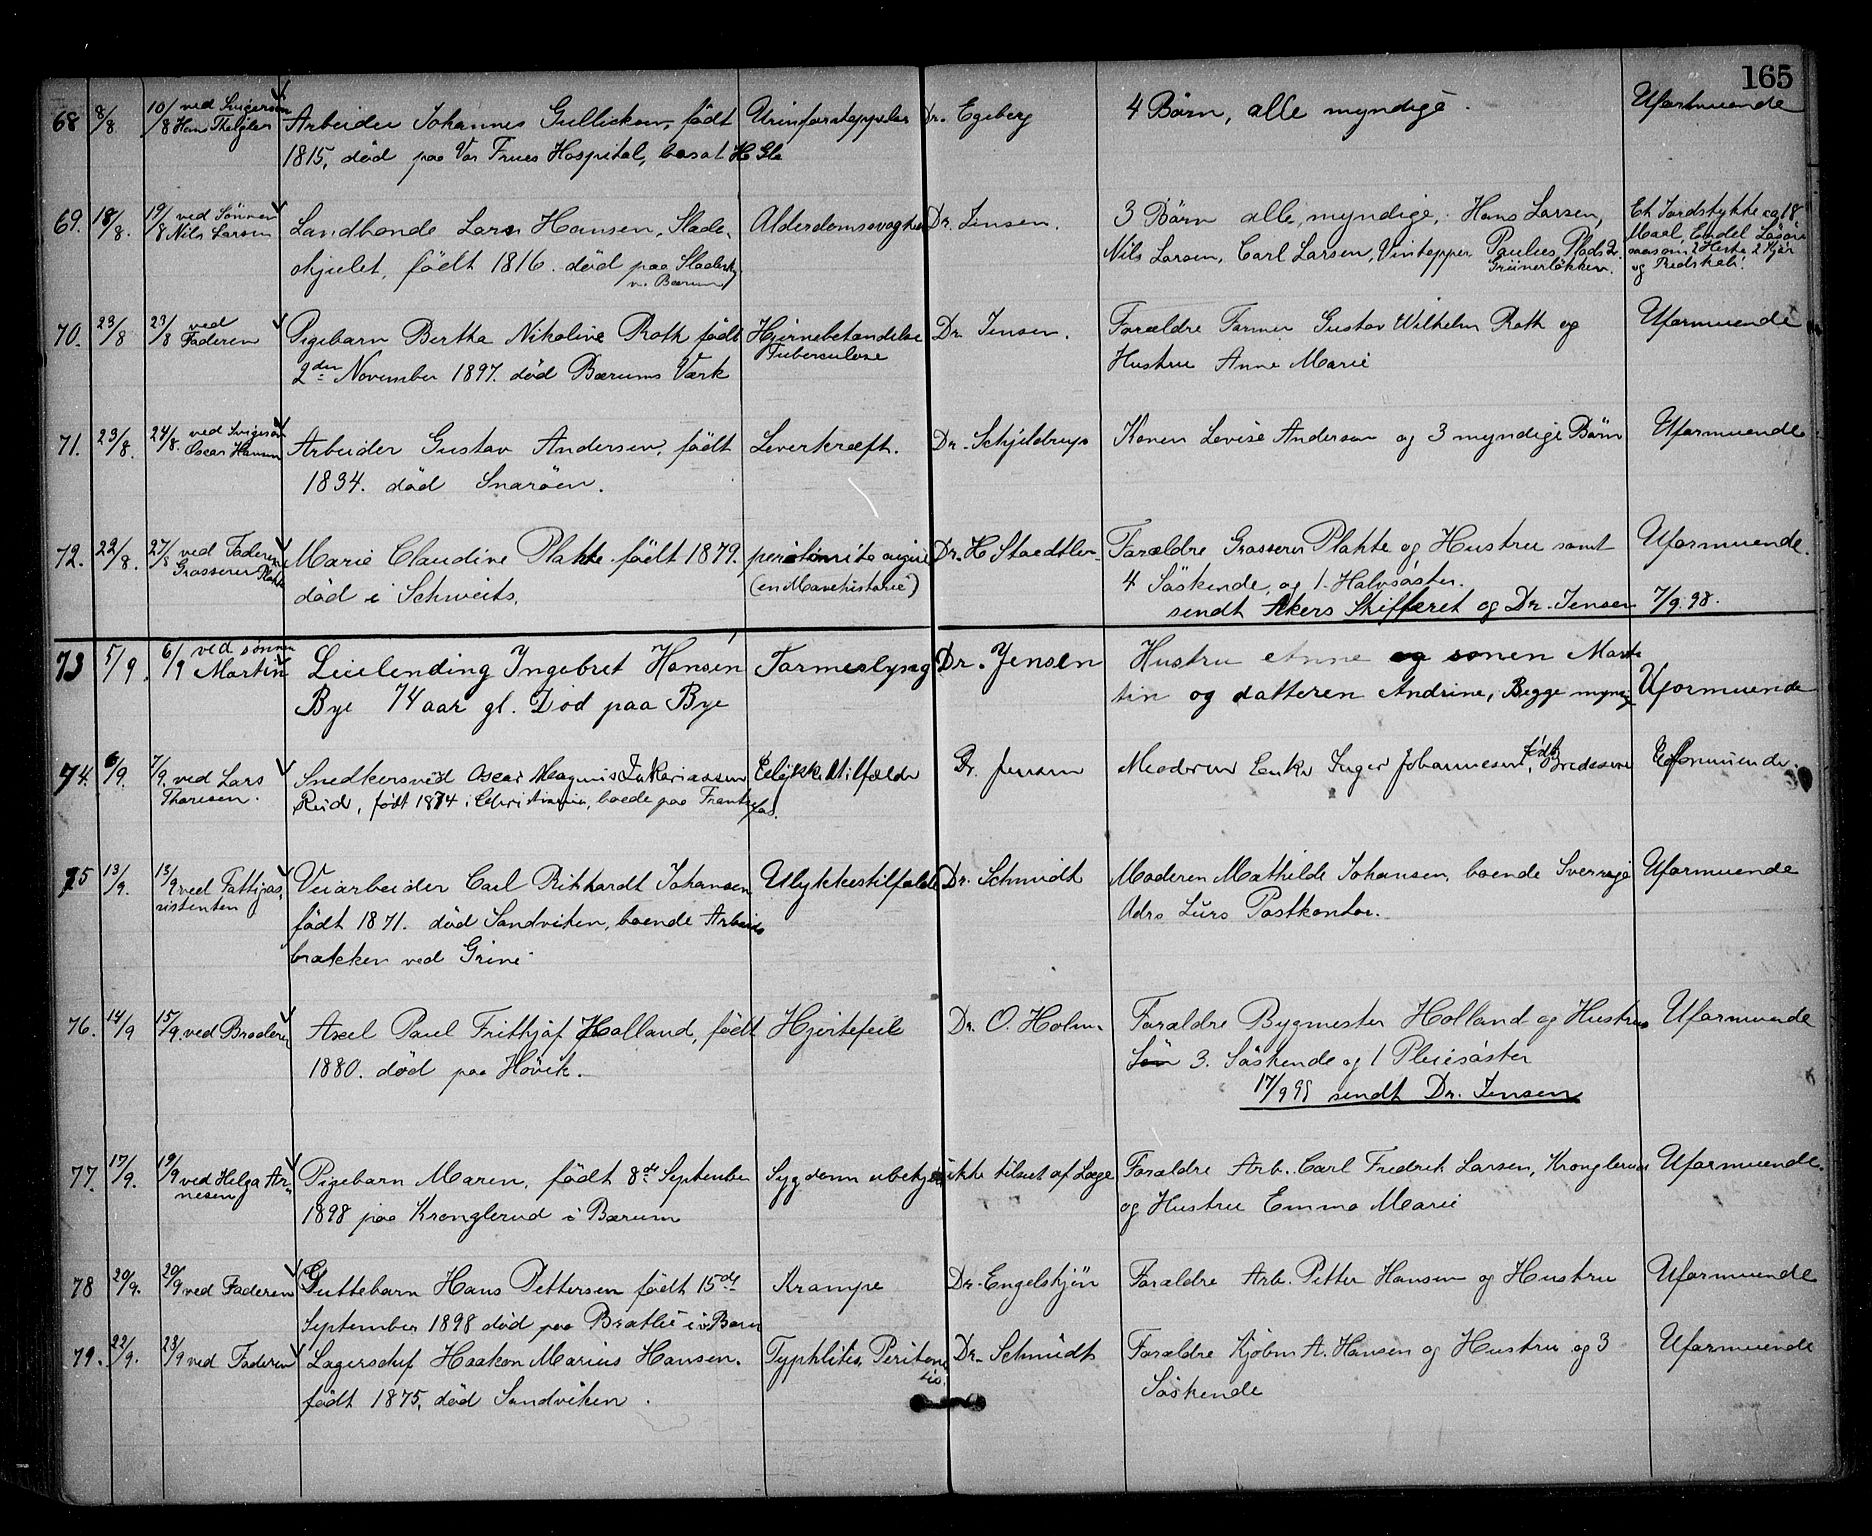 165
68 8/8 10/8 ved Svigersøn Hans Arbeider Johannes Gullicksen, født Dr. Egeberg 4 Børn, alle myndige. Uformuende
1815, død paa Vor Frues Hospital, bosat
69. 18/8. 19/8 ved Sønnen Nils Larsen Landhandler Lars Hansen, Slade- Alderdomssvaghed Dr. Jensen. 3 Børn alle myndige, Hans Larsen, Et Jordstykke og 18
skjulet, født 1816. død paa Nils Larsen, Carl Larsen, Vintapper Paulus Plads 2. Maal, Endel Løsøre
v. Bærum Grünerløkken. saasom 2 Heste 2 Kjør
og Redskab.
70. 23/8 23/8 ved Faderen Pigebarn Bertha Nikoline Roth født Hjernebetændelse Dr. Jensen. Forældre Former Gustav Wilhelm Roth og Uformuende
2den November 1897. død Bærums Værk Tuberculose Hustru Anne Marie
71. 23/8. 24/8. ved Svigersøn Oscar Hansen Arbeider Gustav Andersen, født Leverkræft. Dr. Schjeldrup Konen Lovise Andersen og 3 myndige Børn Uformuende
1834. død Snarøen.
72. 22/8. 27/8 ved Faderen Grosserer Platte Marie Claudine Platte født 1879. Dr. H. Staedtler Forældre Grosserer Platte og Hustru samt Uformuende.
død i Schweits. 4 Søskende, og 1 Halvsøster.
sendt Akers Skifteret og Dr. Jensen 7/9 98.
73 5/9. 6/9 ved sønnen Martin Leilending Ingebret Hansen Tarmeslyng Dr. Jensen Hustru Anne og sonen Mar-
Bye 74 aar gl. Död paa Bye tin og datteren Andrine, Begge myndig Uformuende
74. 6/9. 7/9. ved Lars Thoresen. Snedkersvend Oscar Magnus Zakariassen Ulykkestilfælde Dr. Jensen Moderen Enke Inger Johannesen, født Bredesen Uformuende.
Rud, født 1874 i Christiania, boede paa
75 13/9. 13/9 ved Fattigas- Veiarbeider Carl Rikhardt Johansen Ulykkestilfælde Dr. Schmidt Moderen Mathilde Johansen, boende Sverrige Uformuende
sistenten født 1871. død Sandviken, boende Arbeids Adrs Lurs Postkontor.
brakken ved Grini
76. 14/9 15/9. ved Broderen Axel Paul Frithjof Holland, født Hjertefeil Dr. O. Holm. Forældre Bygmester Holland og Hustru Uformuende
1880. død paa Høvik. Søn 3. Søskende og 1 Pleiesøster
17/9 98 sendt Dr. Jensen
77. 17/9. 19/9 ved Helga Ar- Pigebarn Maren, født 8de September Sygdom ubekjendt ikke tilseet af Læge Forældre Arb. Carl Fredrik Larsen, Kronglerud Uformuende.
nesen 1898 paa Kronglerud i Bærum og Hustru Emma Marie
78 20/9. 20/9 ved Faderen Guttebarn Hans Pettersen født 15de Krampe Dr. Engelskjøn Forældre Arb. Petter Hansen og Hustru Uformuende
September 1898 død paa Bratlie i
79. 22/9. 23/9 ved Faderen Lagerschef Haakon Marius Hansen. Typhlitis, Peritonitis. Dr. Schmidt Forældre Kjøbm A. Hansen og Hustru og 3 Uformuende
født 1875, død Sandviken. Søskende